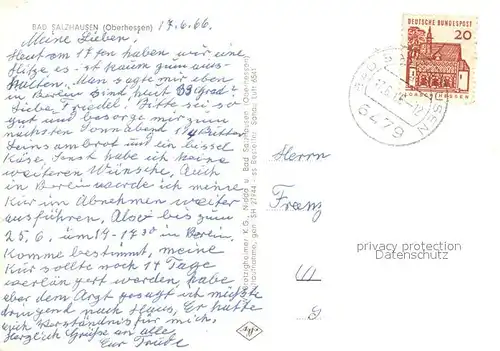 BAD SALZHAUSEN (Oberhessen) 17.6.66.
Meine Lieben!
Heut am 17ten haben wir eine
Hitze es ist kaum zum aus-
halten. Man sagte mir eben
in Berlin sind heut 33 Grad.
Lieber Friedel! Bitte sei so
gut und besorge mir zum
nächsten Sonnabend 1 Ritter
Leinsambrot und ein bissel
Käse, sonst habe ich keine
weiteren Wünsche, Auch
in Berlin werde ich meine
Kur im Abnehmen weiter
ausführen, Also bis zum
25.6. um 14-17 30 in Berlin.
Komme bestimmt, meine
Kur sollte noch 14 Tage
verlängert werden, habe
aber dem Arzt gesagt ich müßte
dringend nach Haus, Er hatte
auch Verständnis für mich,
Herzliche Grüße an alle
Eure Trude
Nidda u. Bad Salzhausen (Oberhessen)
DEUTSCHE BUNDESPOST
20
6479
Herrn
Franz
privacy protection
Datenschutz